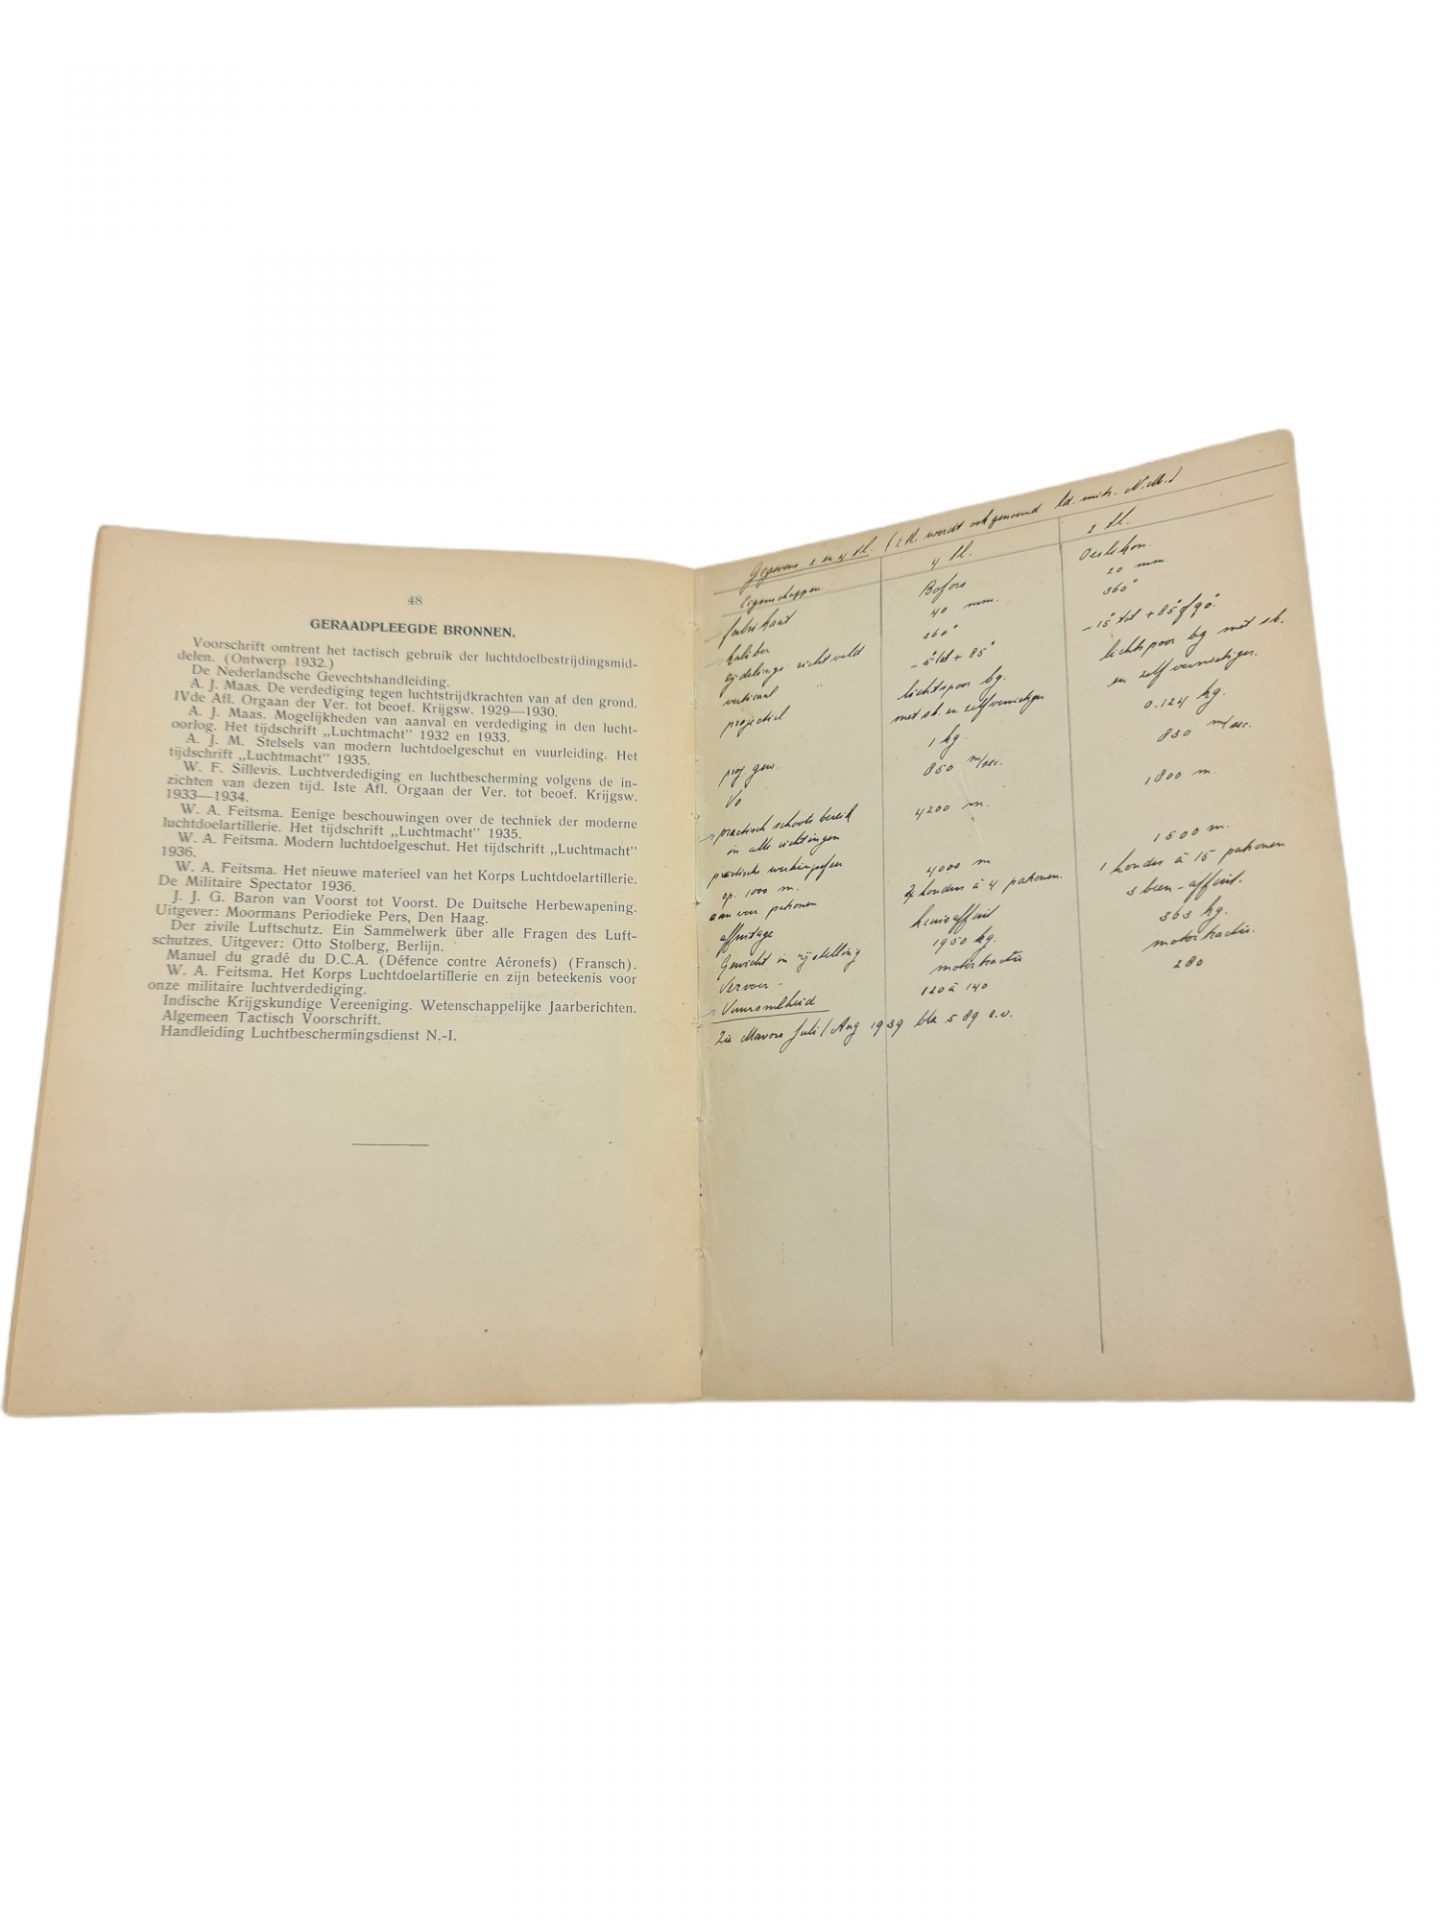 48
GERAADPLEEGDE BRONNEN.
Voorschrift omtrent het tactisch gebruik der luchtdoelbestrijdingsmid-
delen. (Ontwerp 1932.)
De Nederlandsche Gevechtshandleiding.
A. J. Maas. De verdediging tegen luchtstrijdkrachten van af den grond.
IVde Afl. Orgaan der Ver. tot beoef. Krijgsw. 1929—1930.
A. J. Maas. Mogelijkheden van aanval en verdediging in den lucht-
oorlog. Het tijdschrift „Luchtmacht" 1932 en 1933.
A. J. M. Stelsels van modern luchtdoelgeschut en vuurleiding. Het
tijdschrift „Luchtmacht" 1935.
W. F. Sillevis. Luchtverdediging en luchtbescherming volgens de in-
zichten van dezen tijd. Iste Afl. Orgaan der Ver. tot beoef. Krijgsw.
1933—1934.
W. A. Feitsma. Eenige beschouwingen over de techniek der moderne
luchtdoelartillerie. Het tijdschrift „Luchtmacht" 1935.
W. A. Feitsma. Modern luchtdoelgeschut. Het tijdschrift „Luchtmacht"
1936.
W. A. Feitsma. Het nieuwe materieel van het Korps Luchtdoelartillerie.
De Militaire Spectator 1936.
J. J. G. Baron van Voorst tot Voorst. De Duitsche Herbewapening.
Uitgever: Moormans Periodieke Pers, Den Haag.
Der zivile Luftschutz. Ein Sammelwerk über alle Fragen des Luft-
schutzes. Uitgever: Otto Stolberg, Berlijn.
Manuel du gradé du D.C.A. (Défence contre Aéronefs) (Fransch).
W. A. Feitsma. Het Korps Luchtdoelartillerie en zijn beteekenis voor
onze militaire luchtverdediging.
Indische Krijgskundige Vereeniging. Wetenschappelijke Jaarberichten.
Algemeen Tactisch Voorschrift.
Handleiding Luchtbeschermingsdienst N.-I.
Gegevens 2 en 4 tl. (2 tl. wordt ook genoemd ld. mitr. N.M.)
Eigenschappen. 4 tl. 2 tl.
fabrikaat Bofors Oerlikon.
kaliber 40 mm. 20 mm
zijdelings richtveld 360° 360°
verticaal " -5° tot + 85° -15° tot + 85° of 90°.
projectiel lichtspoor bg. lichtspoor bg met sb.
met sb. en zelfvernietiger en zelfvernietiger.
proj gew. 1 kg. 0.124 kg.
Vo 850 m/sec. 830 m/sec.
practisch schootsbereik 4200 m. 1800 m.
in alle richtingen
practische werkingssfeer 4000 m 1500 m.
op. 1000 m.
aanvoer patronen houders à 4 patronen. 1 houder à 15 patronen
affuitage kruisaffuit 3 been-affuit.
Gewicht in rijstelling 1950 kg. 363 kg.
Vervoer - motortractie motortractie.
Vuursnelheid 120 à 140 280
Zie Mavors Juli/Aug 1939 blz 589 e.v.